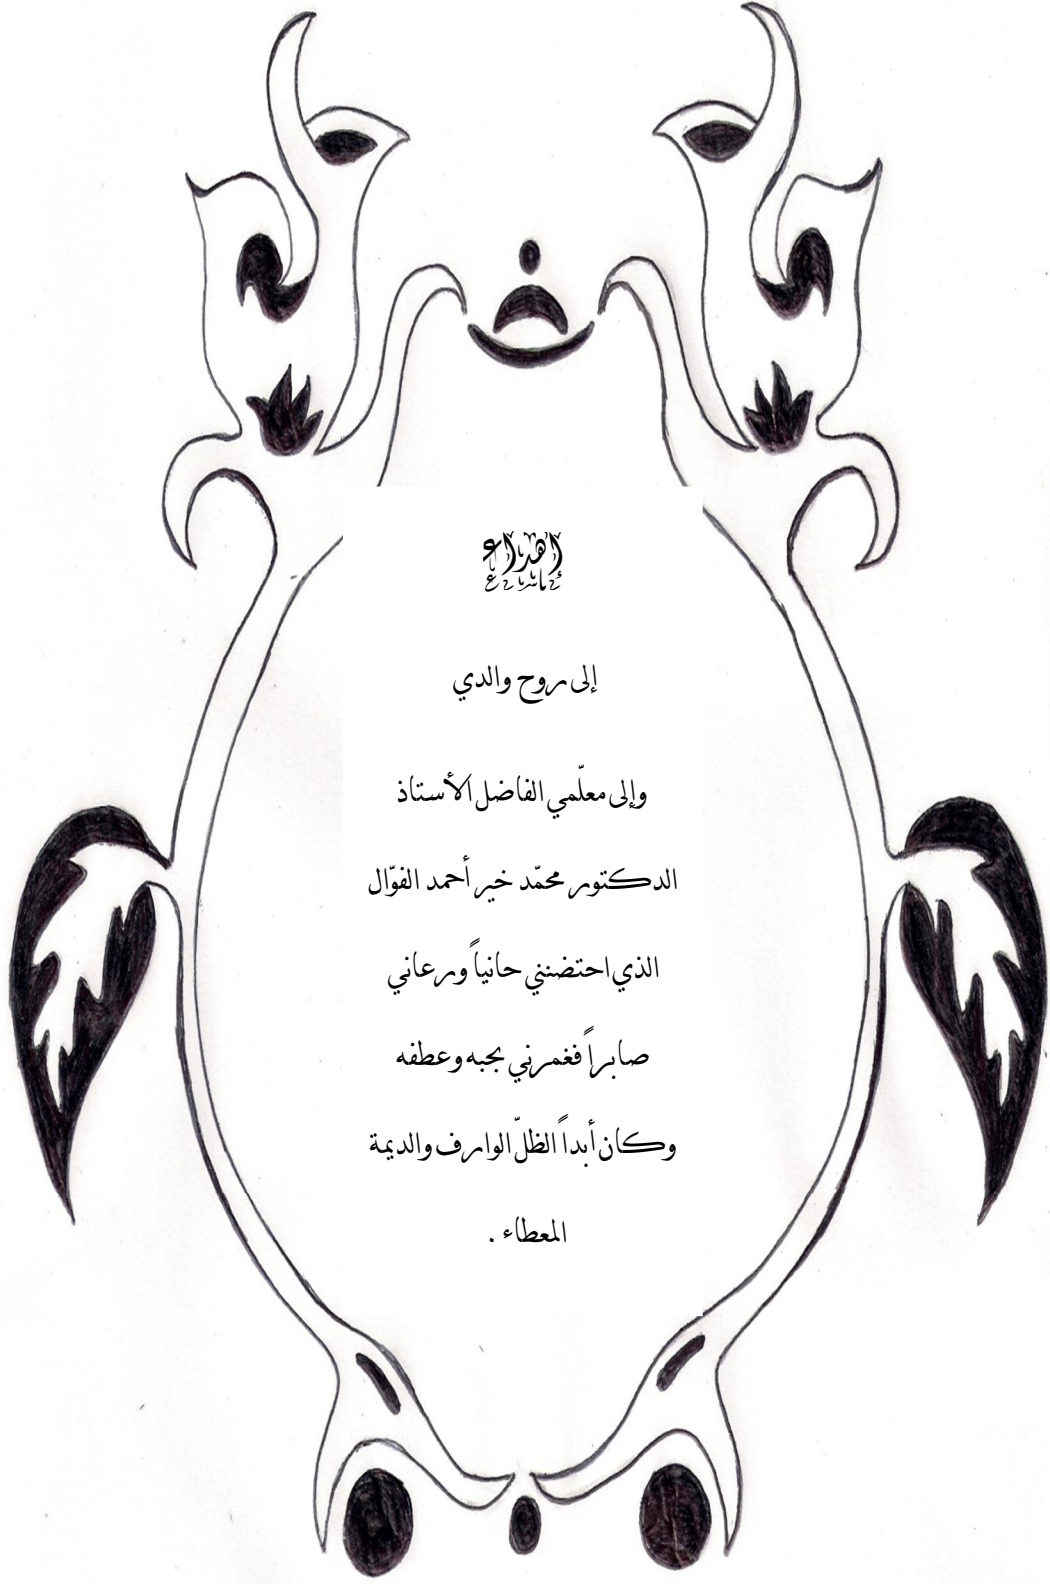 إهداء
إلى روح والدي
وإلى معلّمي الفاضل الأستاذ
الدكتور محمّد خير أحمد الفوّال
الذي احتضنني حانياً ورعاني
صابراً فغمرني بحبه وعطفه
وكان أبداً الظلّ الوارف والديمة
المعطاء .